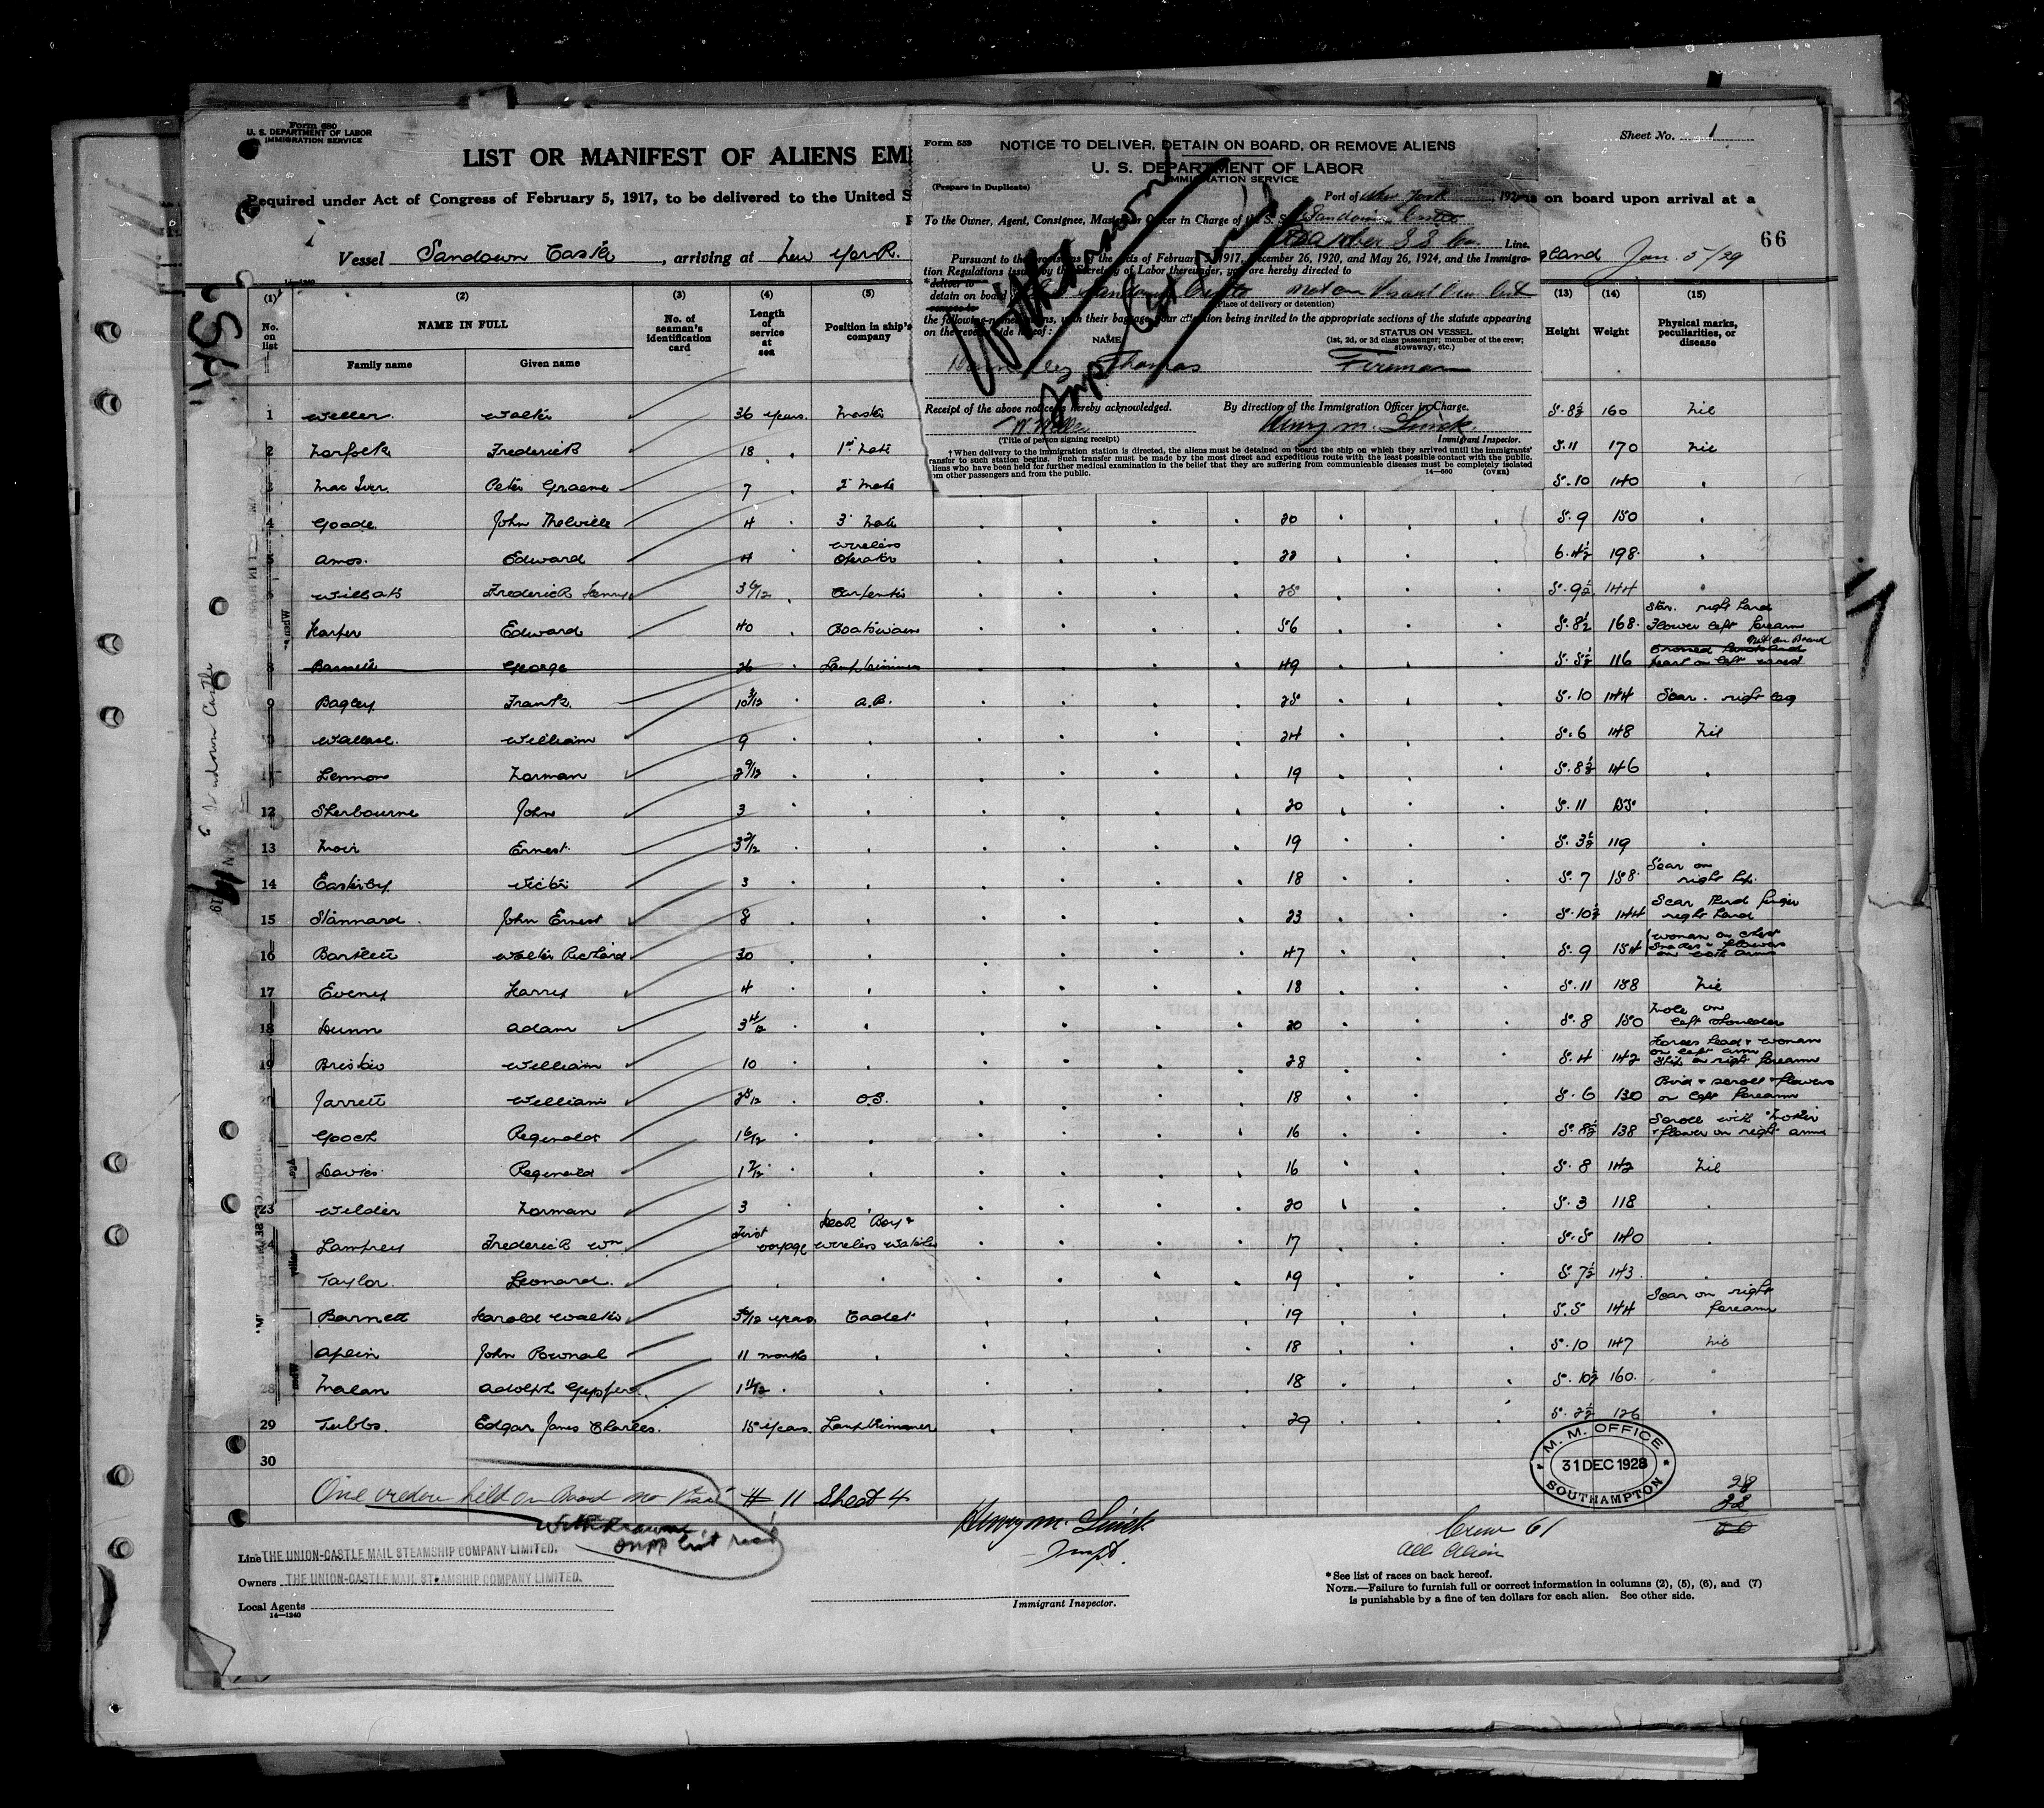 Form 680
U. S. DEPARTMENT OF LABOR
IMMIGRATION SERVICE
Sheet No. 1
LIST OR MANIFEST OF ALIENS EM
Required under Act of Congress of February 5, 1917, to be delivered to the United S
ns on board upon arrival at a
66
Vessel Sandown Castle, arriving at New York.
gland Jan. 5/29
14-1240
Form 559
NOTICE TO DELIVER, DETAIN ON BOARD, OR REMOVE ALIENS
U. S. DEPARTMENT OF LABOR
IMMIGRATION SERVICE
(Prepare in Duplicate)
Port of New York, 192
To the Owner, Agent, Consignee, Master or Officer in Charge of the S. S. Sandown Castle
Line.
Pursuant to the provisions of the acts of February 5, 1917, December 26, 1920, and May 26, 1924, and the Immigra-
tion Regulations issued by the Secretary of Labor thereunder, you are hereby directed to
deliver to
detain on board
remove to
(Place of delivery or detention)
the following-named aliens, with their baggage, your attention being invited to the appropriate sections of the statute appearing
on the reverse side hereof:
NAME
STATUS ON VESSEL
(1st, 2d, or 3d class passenger; member of the crew;
stowaway, etc.)
Thomas Fireman
Withdrawn
Receipt of the above notice is hereby acknowledged.
By direction of the Immigration Officer in Charge.
W Weller
Henry M. Linick
(Title of person signing receipt)
Immigrant Inspector.
† When delivery to the immigration station is directed, the aliens must be detained on board the ship on which they arrived until the immigrants'
transfer to such station begins. Such transfer must be made by the most direct and expeditious route with the least possible contact with the public.
liens who have been held for further medical examination in the belief that they are suffering from communicable diseases must be completely isolated
om other passengers and from the public.
14-660 (OVER)
(1) (2) (3) (4) (5) (13) (14) (15)
No. on list
NAME IN FULL
Family name Given name
No. of seaman's identification card
Length of service at sea
Position in ship's company
Height Weight
Physical marks, peculiarities, or disease
1 Weller. Walter 36 years. Master 5.8½ 160 Nil
2 Norfolk Frederick 18 1st Mate 5.11 170 Nil
3 Mac Iver. Peter Graeme 7 2 Mate 5.10 140
4 Goade. John Thelville 4 3 Mate 20 5.9 150
5 Amos. Edward 4 Wireless Operator 22 6.4½ 198
6 Willats Frederick Henry 3 6/12 Carpenter 25 5.9½ 144
Harper Edward 40 Boatswain 56 5.8½ 168 Star. right hand Flower left forearm
8 Barnett George 26 Lamptrimmer 49 5.5½ 116 Crossed hands and heart on left Not on Board
9 Bagley Frank 10 3/12 A.B. 25 5.10 144 Scar. right leg
Wallace. William 9 24 5.6 148 Nil
Lennon Norman 2 9/12 19 5.8½ 146
12 Sherbourne John 3 20 5.11 155
13 Moir Ernest 3 2/12 19 5.3½ 119
14 Easterby Victor 3 18 5.7 158 Scar on right
15 Stannard. John Ernest 8 23 5.10½ 144 Scar third finger right hand
16 Bartlett Walter Richard 30 47 5.9 154 Woman on chest Snakes & flowers on both arms
17 Eveney Harry 4 18 5.11 158 Nil
18 Dunn Adam 3 4/12 20 5.8 150 Mole on left shoulder
19 Bristow William 10 28 5.4 142 Horses head & woman on left arm Ship on right forearm
Jarrett William 2 5/12 O.S. 18 5.6 130 Bird & scroll & flowers on left forearm
Gooch Reginald 1 6/12 16 5.8½ 138 Scroll with "Mother" & flower on right arm
Davies Reginald 1 7/12 16 5.8 142 Nil
23 Wilder Norman 3 20 5.3 118
24 Lamprey Frederick Wm First voyage Deck Boy & Wireless Watcher 17 5.5 140
Taylor. Leonard. 19 5.7½ 143
Barnett Harold Walter years Cadet 19 5.5 144 Scar on right forearm
Aplin John Pownal 11 months 18 5.10 147 Nil
28 Malan Adolph 1 11/12 18 5.10½ 160
29 Tubbs. Edgar James Charles. 15 years. Lamptrimmer 29 5.2½ 126
30
One held on Board no Visa # 11 Sheet 4
Withdrawn
M. M. OFFICE
31 DEC 1928
SOUTHAMPTON
28
Henry M. Linick
Inspt.
Crew 61
All Alien
Line THE UNION-CASTLE MAIL STEAMSHIP COMPANY LIMITED.
Owners THE UNION-CASTLE MAIL STEAMSHIP COMPANY LIMITED.
Local Agents
14-1240
Immigrant Inspector.
* See list of races on back hereof.
NOTE.—Failure to furnish full or correct information in columns (2), (5), (6), and (7)
is punishable by a fine of ten dollars for each alien. See other side.